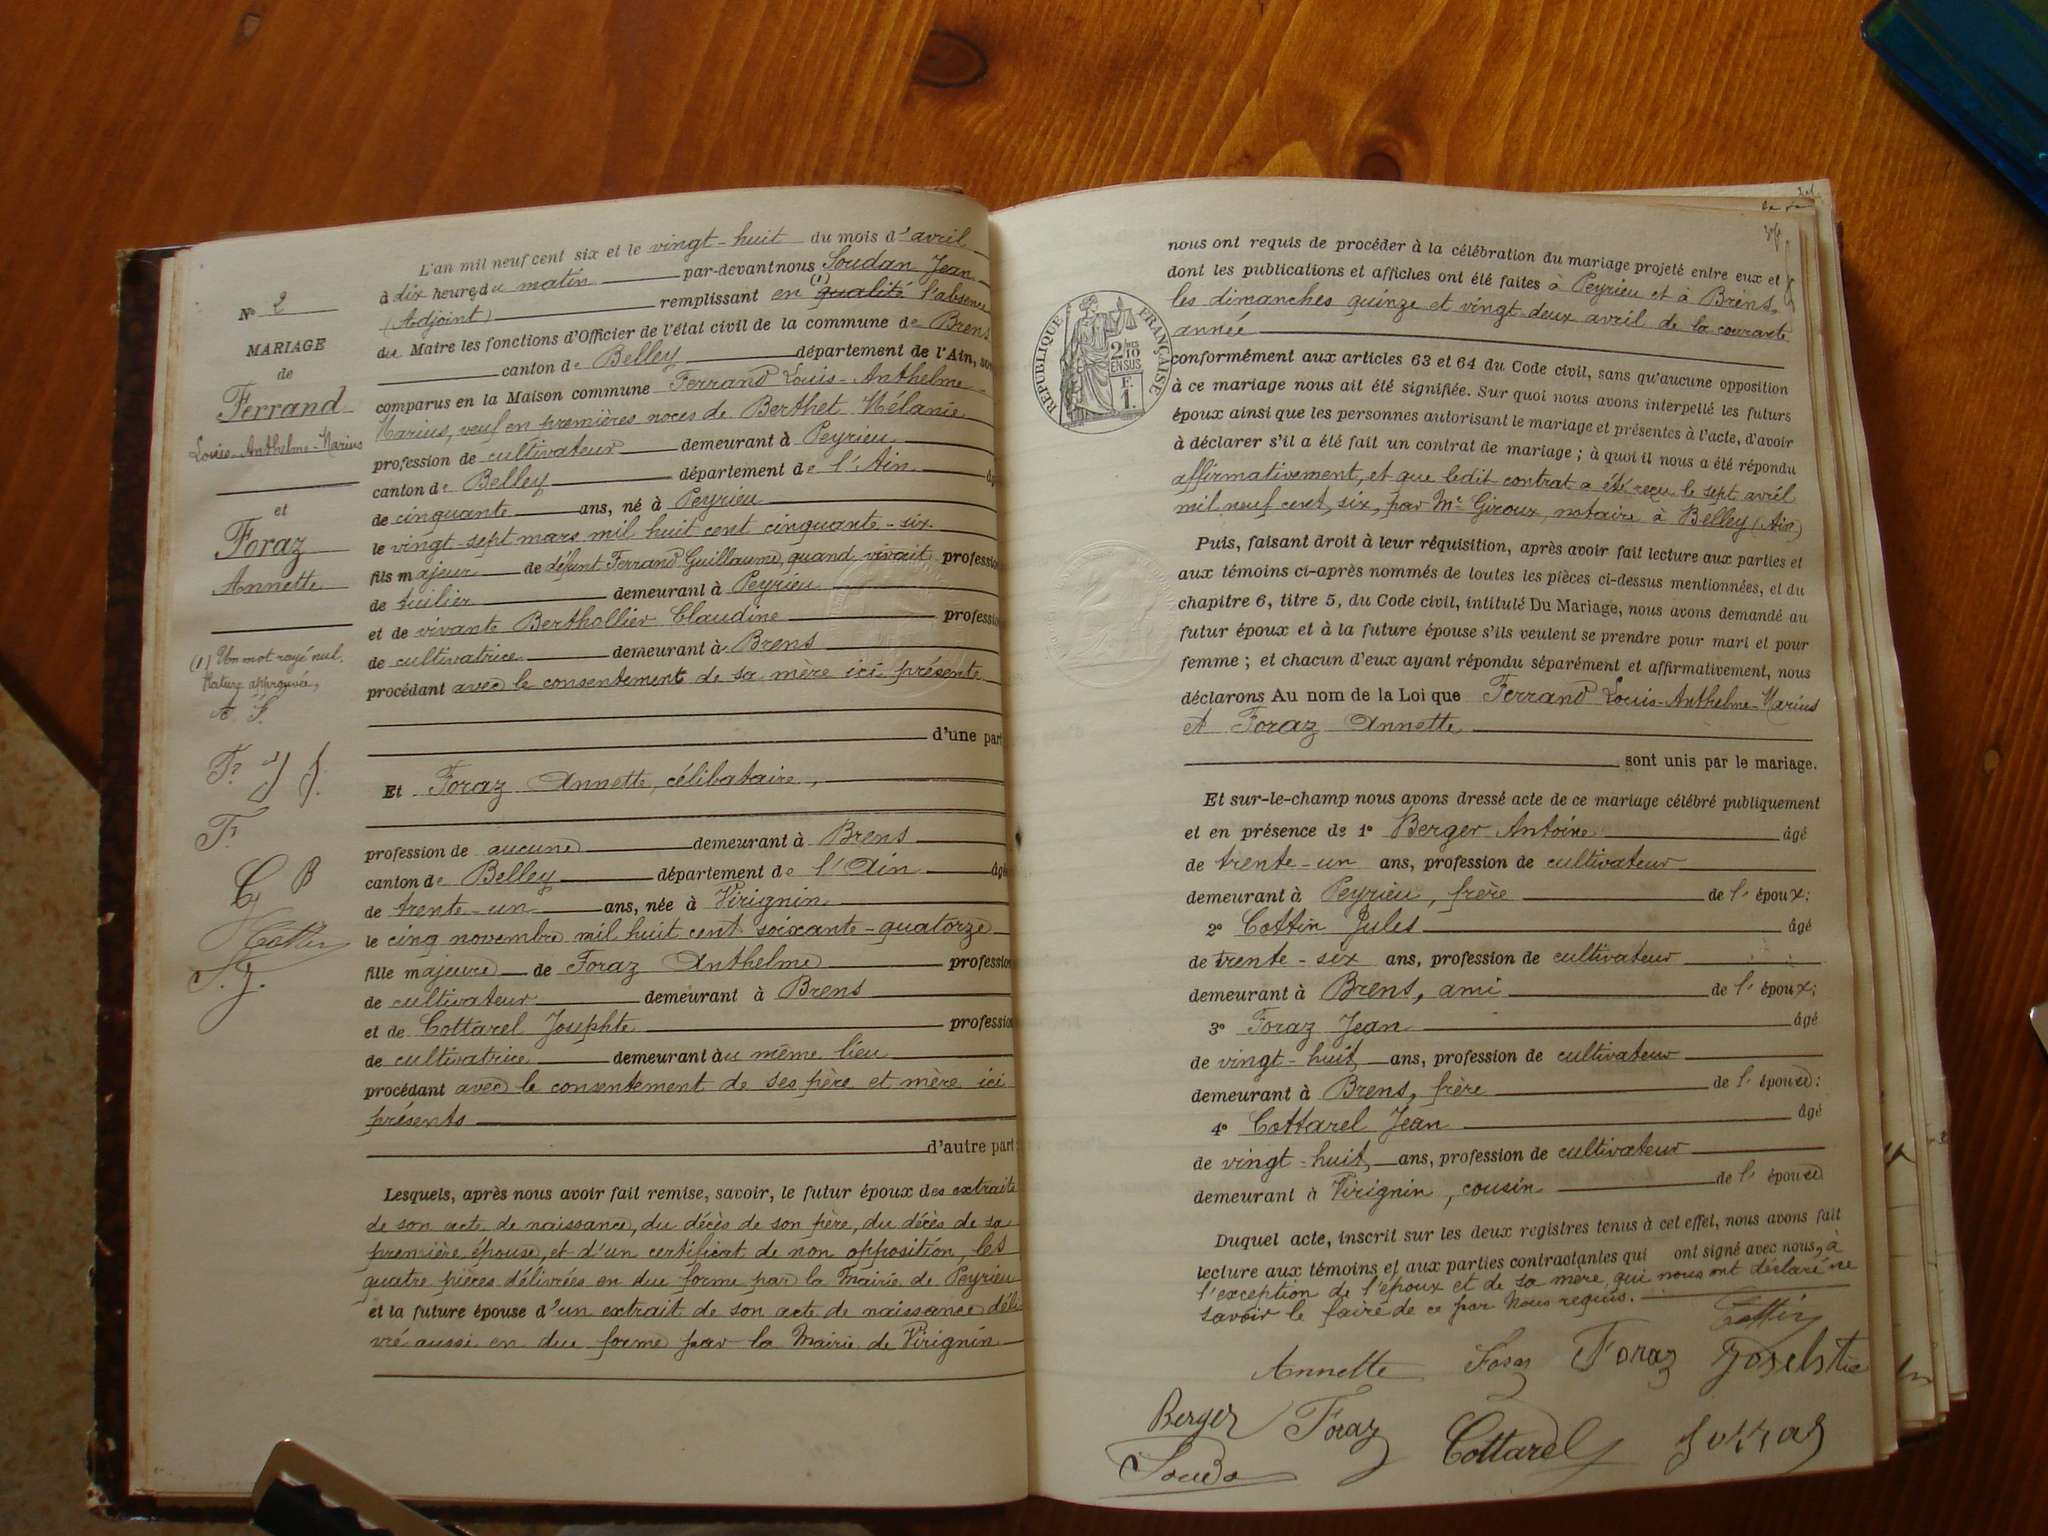 N° 2
MARIAGE
de
Ferrand
Louis-Anthelme-Marius
et
Foraz
Annette
(1) Un mot rayé nul.
Rature approuvée,
A F.
F? J F.
F?
C B
Cottin
S. J.
L'an mil neuf cent six et le vingt-huit du mois d'avril
à dix heures du matin par-devant nous Soudan Jean
(Adjoint) remplissant en (1) qualité l'absence
du Maire les fonctions d'Officier de l'état civil de la commune de Brens
canton de Belley département de l'Ain, son
comparus en la Maison commune Ferrand Louis-Anthelme
Marius, veuf en premières noces de Berthet Mélanie
profession de cultivateur demeurant à Peyrieu
canton de Belley département de l'Ain âg
de cinquante ans, né à Peyrieu
le vingt-sept mars mil huit cent cinquante-six
fils majeur de défunt Ferrand Guillaume, quand vivait, profession
de tuilier demeurant à Peyrieu
et de vivante Berthollier Claudine profession
de cultivatrice demeurant à Brens
procédant avec le consentement de sa mère ici présente
d'une part
Et Foraz Annette, célibataire,
profession de aucune demeurant à Brens
canton de Belley département de l'Ain âgé
de trente-un ans, née à Virignin
le cinq novembre mil huit cent soixante-quatorze
fille majeure de Foraz Anthelme profession
de cultivateur demeurant à Brens
et de Cottarel Josephte profession
de cultivatrice demeurant au même lieu
procédant avec le consentement de ses père et mère ici
présents
d'autre part
Lesquels, après nous avoir fait remise, savoir, le futur époux des extraits
de son acte de naissance, du décès de son père, du décès de sa
première épouse, et d'un certificat de non opposition, les
quatre pièces délivrées en due forme par la Mairie de Peyrieu
et la future épouse d'un extrait de son acte de naissance déli
vré aussi en due forme par la Mairie de Virignin
nous ont requis de procéder à la célébration du mariage projeté entre eux et
dont les publications et affiches ont été faites à Peyrieu et à Brens,
les dimanches quinze et vingt deux avril de la courante
année
RÉPUBLIQUE FRANÇAISE
2/10 EN SUS
F.
1.
conformément aux articles 63 et 64 du Code civil, sans qu'aucune opposition
à ce mariage nous ait été signifiée. Sur quoi nous avons interpellé les futurs
époux ainsi que les personnes autorisant le mariage et présentes à l'acte, d'avoir
à déclarer s'il a été fait un contrat de mariage ; à quoi il nous a été répondu
affirmativement, et que ledit contrat a été reçu le sept avril
mil neuf cent six, par Me Giroux, notaire à Belley (Ain)
Puis, faisant droit à leur réquisition, après avoir fait lecture aux parties et
aux témoins ci-après nommés de toutes les pièces ci-dessus mentionnées, et du
chapitre 6, titre 5, du Code civil, intitulé Du Mariage, nous avons demandé au
futur époux et à la future épouse s'ils veulent se prendre pour mari et pour
femme ; et chacun d'eux ayant répondu séparément et affirmativement, nous
déclarons Au nom de la Loi que Ferrand Louis-Anthelme-Marius
et Foraz Annette
sont unis par le mariage.
Et sur-le-champ nous avons dressé acte de ce mariage célébré publiquement
et en présence de 1° Berger Antoine âgé
de trente-un ans, profession de cultivateur
demeurant à Peyrieu, frère de l'époux;
2° Cottin Jules âgé
de trente-six ans, profession de cultivateur
demeurant à Brens, ami de l'époux;
3° Foraz Jean âgé
de vingt-huit ans, profession de cultivateur
demeurant à Brens, frère de l'épouse;
4° Cottarel Jean âgé
de vingt-huit ans, profession de cultivateur
demeurant à Virignin, cousin de l'épouse
Duquel acte, inscrit sur les deux registres tenus à cet effet, nous avons fait
lecture aux témoins et aux parties contractantes qui ont signé avec nous, à
l'exception de l'époux et de sa mère, qui nous ont déclaré ne
savoir le faire de ce par Nous requis.
Cottin
Annette Foraz Foraz
Berger Foraz Cottarel